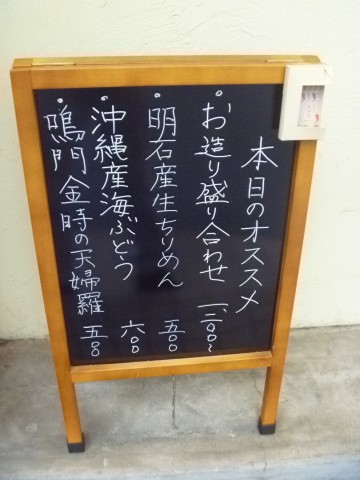 本日のオススメ
・お造り盛り合わせ 一、二〇〇~
・明石産生ちりめん 五〇〇
・沖縄産海ぶどう 六〇〇
・鳴門金時の天婦羅 五〇〇